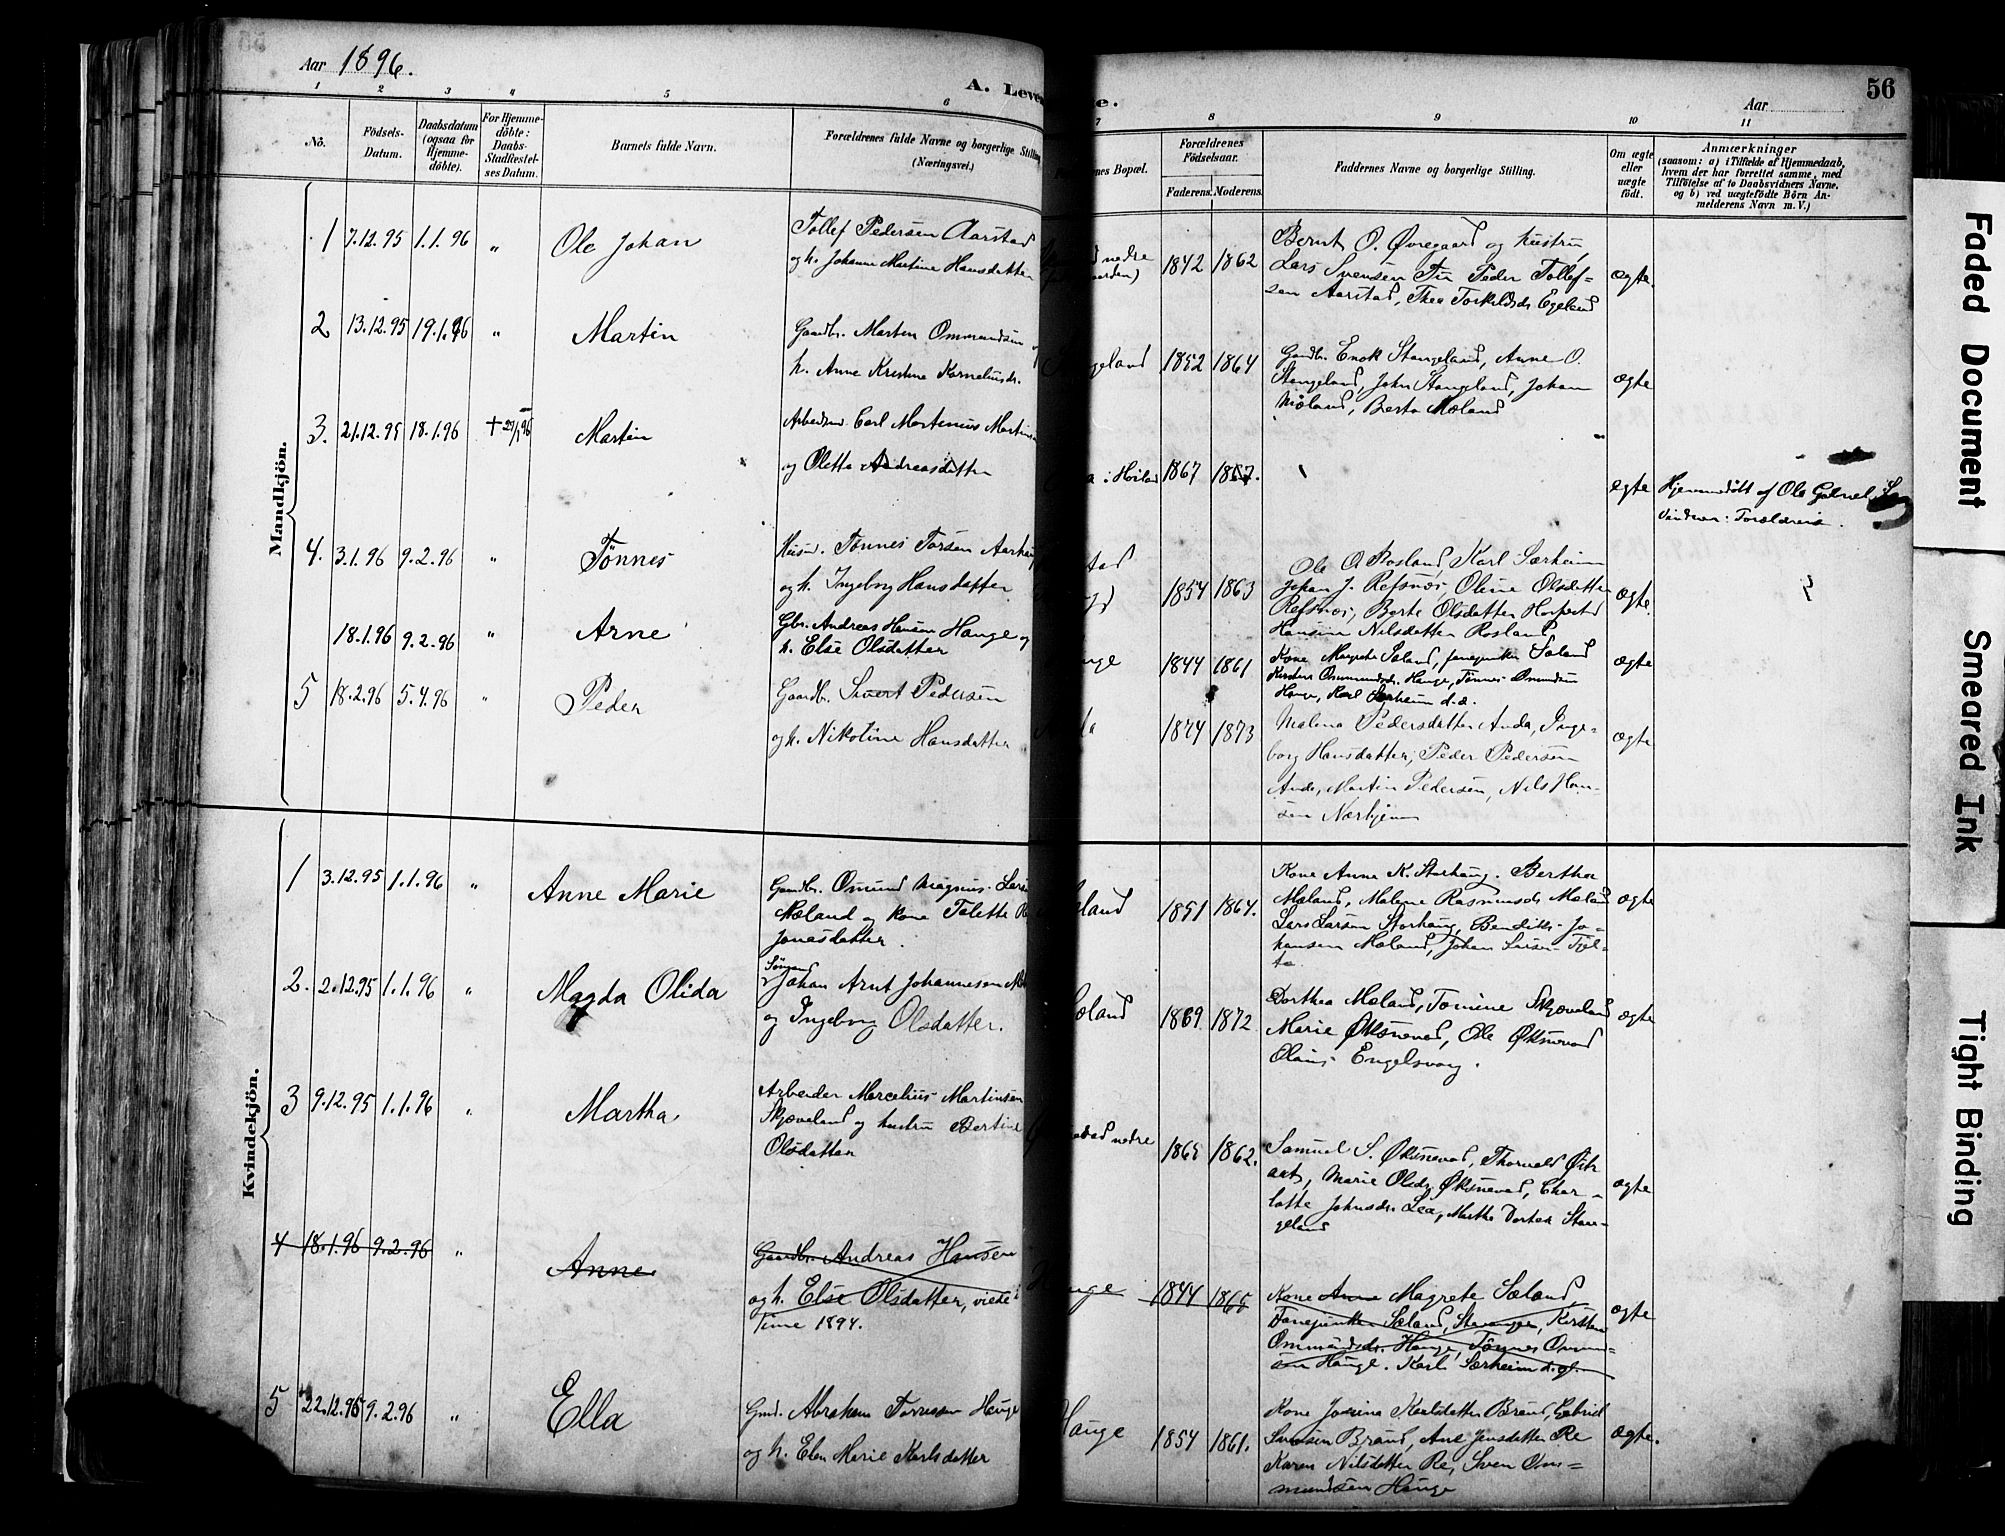 Aar 1896.
A. Leve
e.
Aar
56
1 2 3 4 5 6 7 8 9 10 11
No.
Födsels-
Datum.
Daabsdatum
(ogsaa for
Hjemme-
döbte).
For Hjemme-
döbte:
Daabs-
Stadfæstel-
ses Datum.
Barnets fulde Navn.
Forældrenes fulde Navne og borgerlige Stilling
(Næringsvei.)
nes Bopæl.
Forældrenes
Födselsaar.
Faderens. Moderens.
Faddernes Navne og borgerlige Stilling.
Om ægte
eller
uægte
födt.
Anmærkninger
(saasom: a) i Tilfælde af Hjemmedaab,
hvem der har forrettet samme, med
Tilföielse af to Daabsvidners Navne,
og b) ved uægtefödte Börn An-
melderens Navn m. V.)
Mandkjön.
1 7.12.95 1.1.96 " Ole Johan
Tollef Pedersen Aarstad
og h. Johanne Martine Hansdatter
nedre
1842 1862
Bernt O. Øvregaard og hustru,
Lars Svensen Tu Peder Tollef-
sen Aarstad, Thea Torkildsd. Egeland
ægte.
2 13.12.95 19.1.96 " Martin
Gaardbr. Morten Ommundsen
h. Anne Kristine Korneliusdr.
geland
1852 1864
Gaardbr. Enok Stangeland, Anne O.
Stangeland, John Stangeland, Johan
Mæland, Berta Mæland
ægte
3. 21.12.95 18.1.96 + 27/1 96 Martin
Arbeider Carl Martinius Martins
og Oletta Andreasdatter
a i Høiland
1867
ægte
Hjemmedøbt af Ole Gabriel
Vidner: Forældrene.
4. 3.1.96 9.2.96 " Tønnes
Husm. Tønnes Torsen Aarhau
og h. Ingeborg Hansdatter
tad
1854 1863
Ole O. Rosland, Karl Særheim
Johan J. Refsnæs, Oline Olsdatter
Refsnæs, Berte Olsdatter Horpestad
Hansine Nilsdatter Rosland
ægte.
18.1.96 9.2.96 " Arne
Gbr. Andreas Hansen Hauge og
h. Else Olsdatter
uge
1844 1861
Kone Magrete Sæland, fanejunker Sæland
Kirsten Ommundsdr. Hauge, Tønnes Omundsen
Hauge, Karl Særheim d. æ.
ægte
5 18.2.96 5.4.96 " Peder
Gaardb. Sivert Pedersen
og h. Nikoline Hansdatter
1874 1873
Malena Pedersdatter Anda, Inge-
borg Hansdatter, Peder Pedersen
Anda, Martin Pedersen, Nils Han-
sen Nærhjem
ægte
Kvindekjön.
1 3.12.95 1.1.96 " Anne Marie
Gaardbr. Omund Magnus Lars
Mæland og kone Talette
Jonasdatter.
land
1851 1864.
Kone Anne K. Storhaug. Bertha
Mæland, Malene Rasmusdr. Mæland
Lars Larsen Storhaug, Bendikt Jo-
hansen Mæland, Johan Larsen Tjøt-
ta.
ægte
2. 2.12.95 1.1.96 " Magda Olida
Sømand
Johan Arnt Johannesen
og Ingeborg Olsdatter.
æland
1869 1872
Dorthea Mæland, Tomine Skjæveland
Marie Øksnevad, Ole Øksnevad
Olaus Engelsvog.
ægte
3 9.12.95 1.1.96 " Martha
Arbeider Marcelius Martinsen
Skjæveland og hustru Bertine
Olsdatter
nedre
1865 1862.
Samuel S. Øksnevad, Thorvald
Marie Olsdr. Øksnevad, Char-
lotte Johnsdr. Lea, Martha Dorthea Stan-
geland
ægte
4 18.1.96 9.2.96 " Anne
Gaardbr. Andreas Hansen
og h. Else Olsdatter, viede i
Time 1894.
uge
1844 1865
Kone Anne Magrete Sæland,
Fanejunker Sæland, Stavanger, Kirsten
Ommundsdr. Hauge, Tønnes Omun-
sen Hauge. Karl Særheim d. æ.
ægte
5 22.12.95 9.2.96 " Ella
Gmd. Abraham Tørresen Hauge
og h. Elen Marie Karlsdatter
Hauge
1854 1861.
Kone Josine Karlsdatter Brund, Gabriel
Svensen Brund, Ane Jensdatter Re
Karen Nilsdatter Re, Sven Om-
mundsen Hauge
ægte.
Faded Document
Smeared Ink
Tight Binding